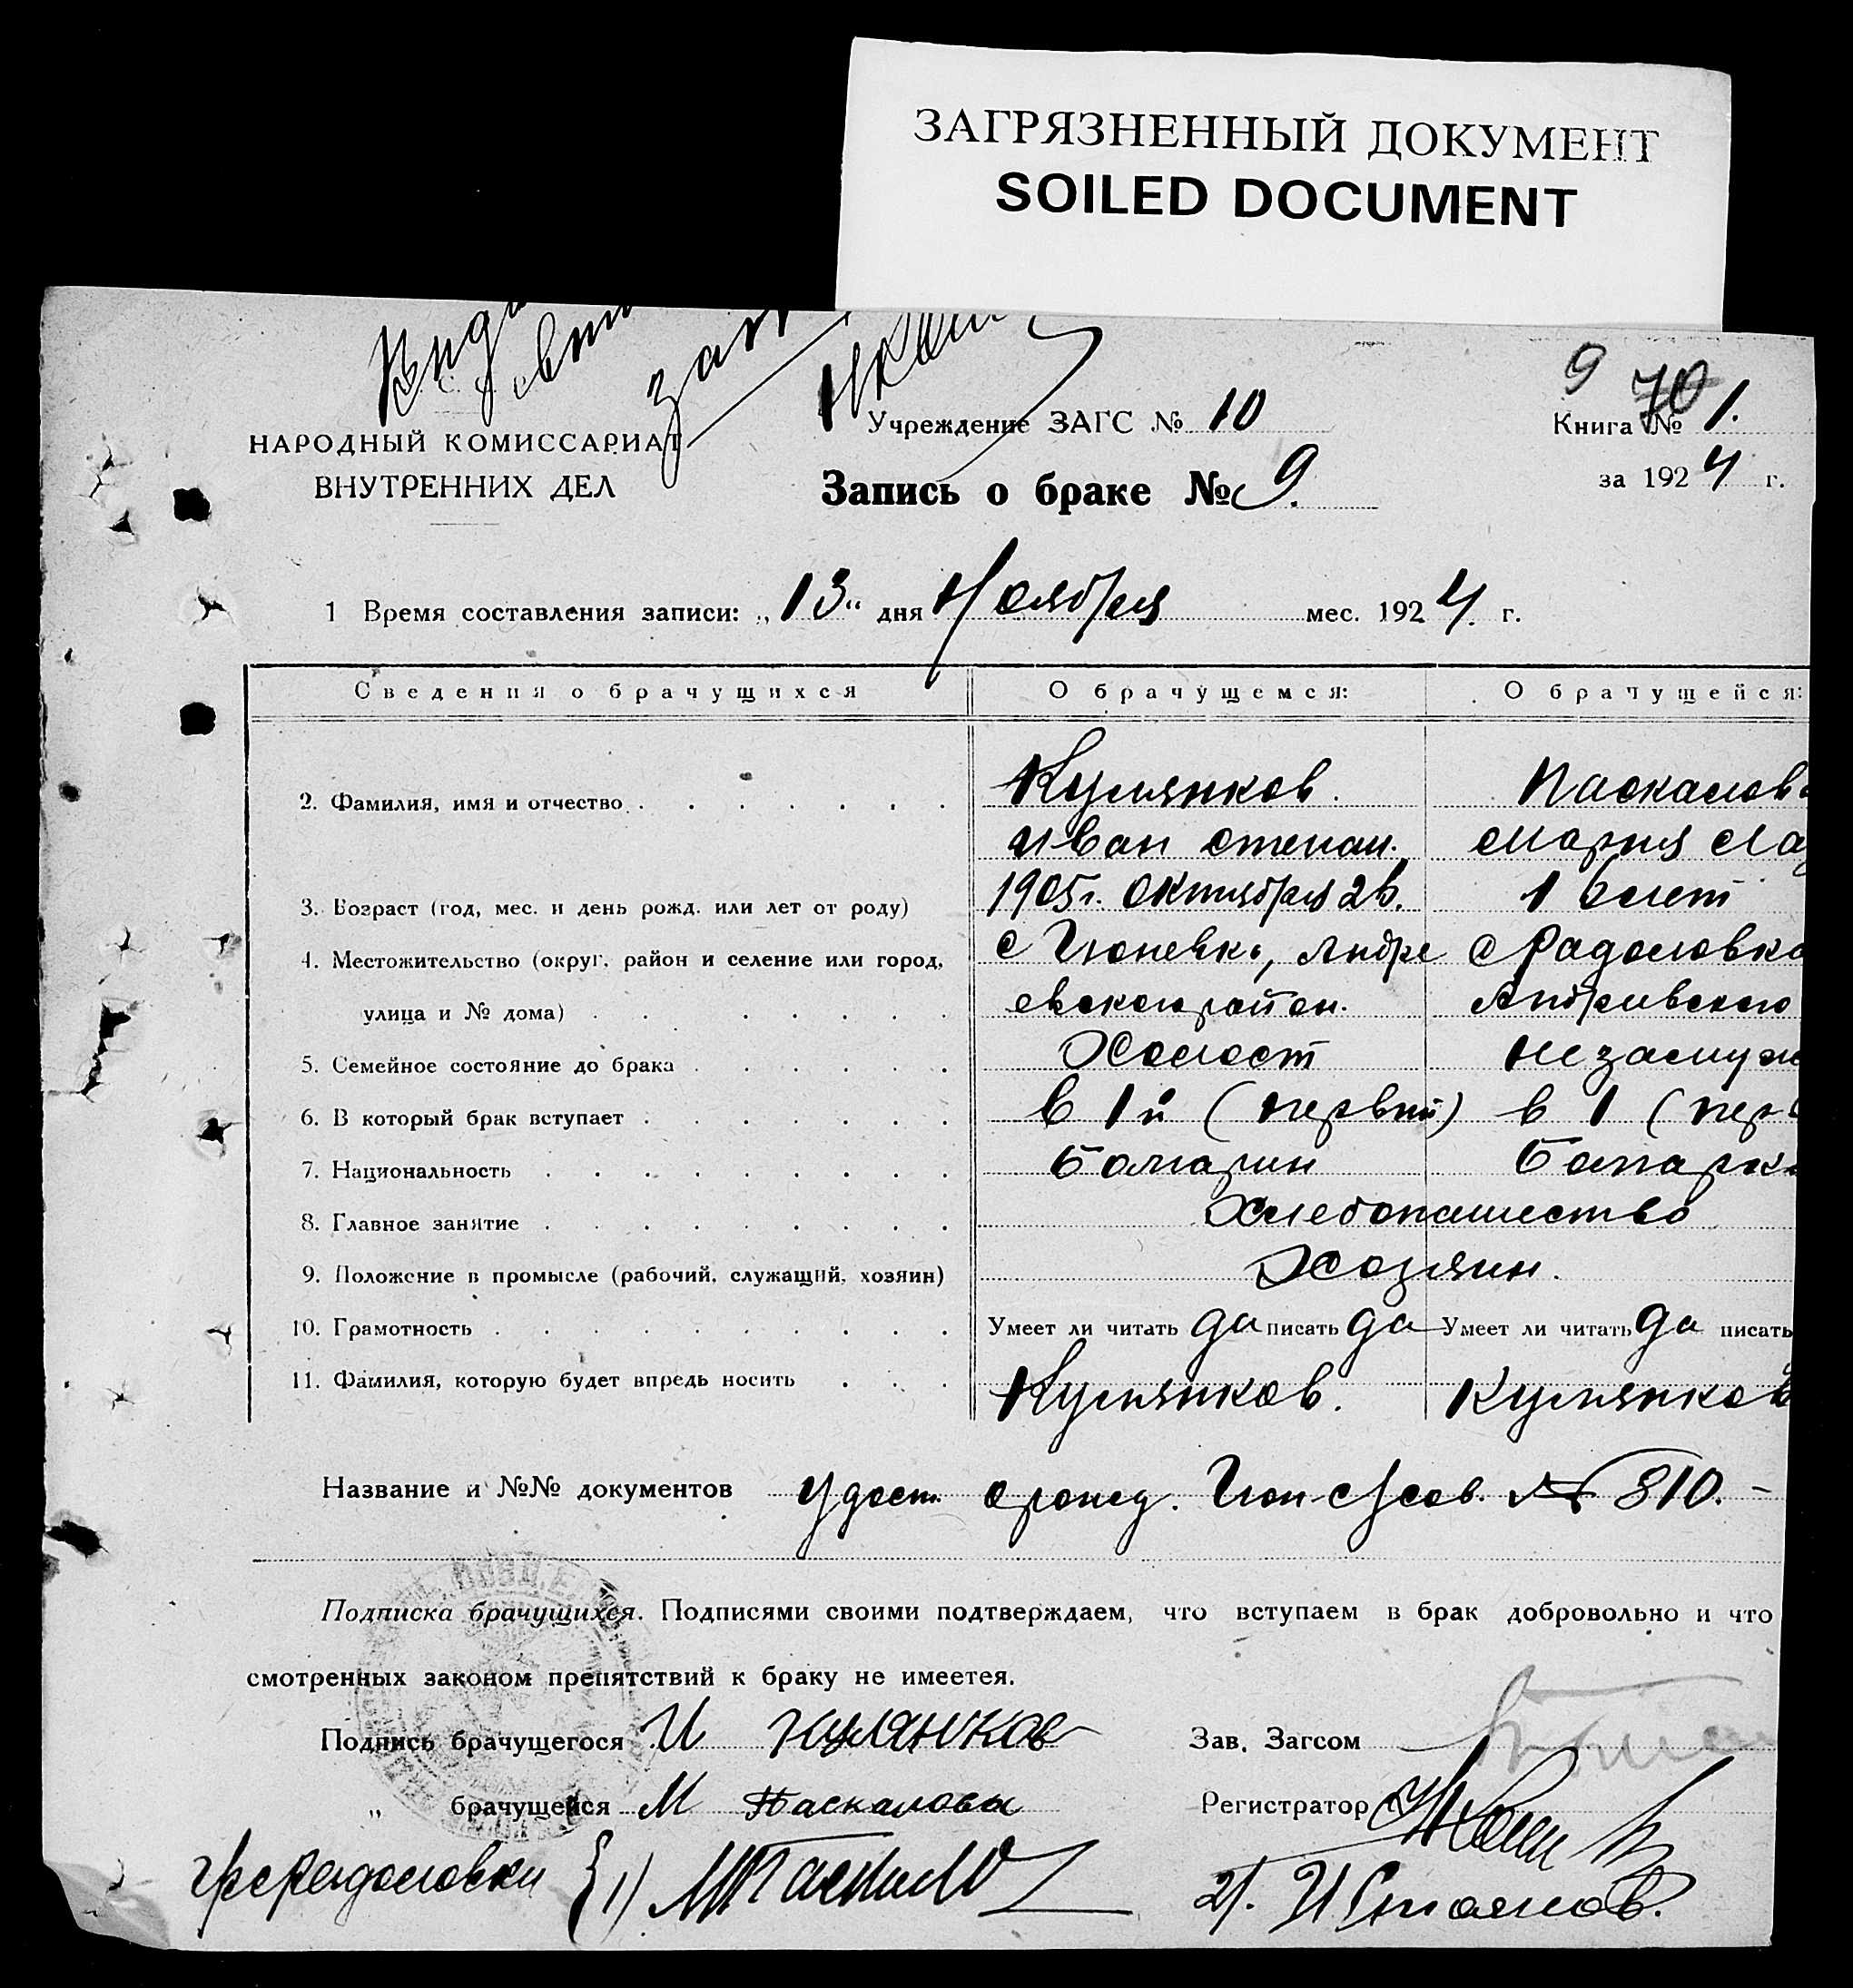 ЗАГРЯЗНЕННЫЙ ДОКУМЕНТ
SOILED DOCUMENT
9 70
НАРОДНЫЙ КОМИССАРИАТ
ВНУТРЕННИХ ДЕЛ
Учреждение ЗАГС № 10
Книга № 1.
за 1924 г.
Запись о браке № 9.
1 Время составления записи: „13" дня Ноября мес. 1924 г.
Сведения о брачущихся О брачущемся: О брачущейся:
2. Фамилия, имя и отчество Кулянков. Паскалова
Иван Степан. Мария
3. Возраст (год, мес. и день рожд. или лет от роду) 1905 г. Октября 26. 18 лет
4. Местожительство (округ, район и селение или город, с Гюневки, Андре с Радоловка
улица и № дома) евского район. Андреевского
5. Семейное состояние до брака Холост Незамуж
6. В который брак вступает в 1й (первый) в 1 (пер
7. Национальность Болгарин Болгарка
8. Главное занятие Хлебопашество
9. Положение в промысле (рабочий, служащий, хозяин) Хозяин.
10. Грамотность Умеет ли читать да писать да Умеет ли читать да писать
11. Фамилия, которую будет впредь носить Кулянков. Кулянков
Название и №№ документов Удост. о рожд. Гюн с/сов. № 810. -
Подписка брачущихся. Подписями своими подтверждаем, что вступаем в брак добровольно и что
смотренных законом препятствий к браку не имеетея.
Подпись брачущегося И Кулянков Зав. Загсом
„ брачущейся М Паскалова Регистратор
1) 2). И Стоянов.